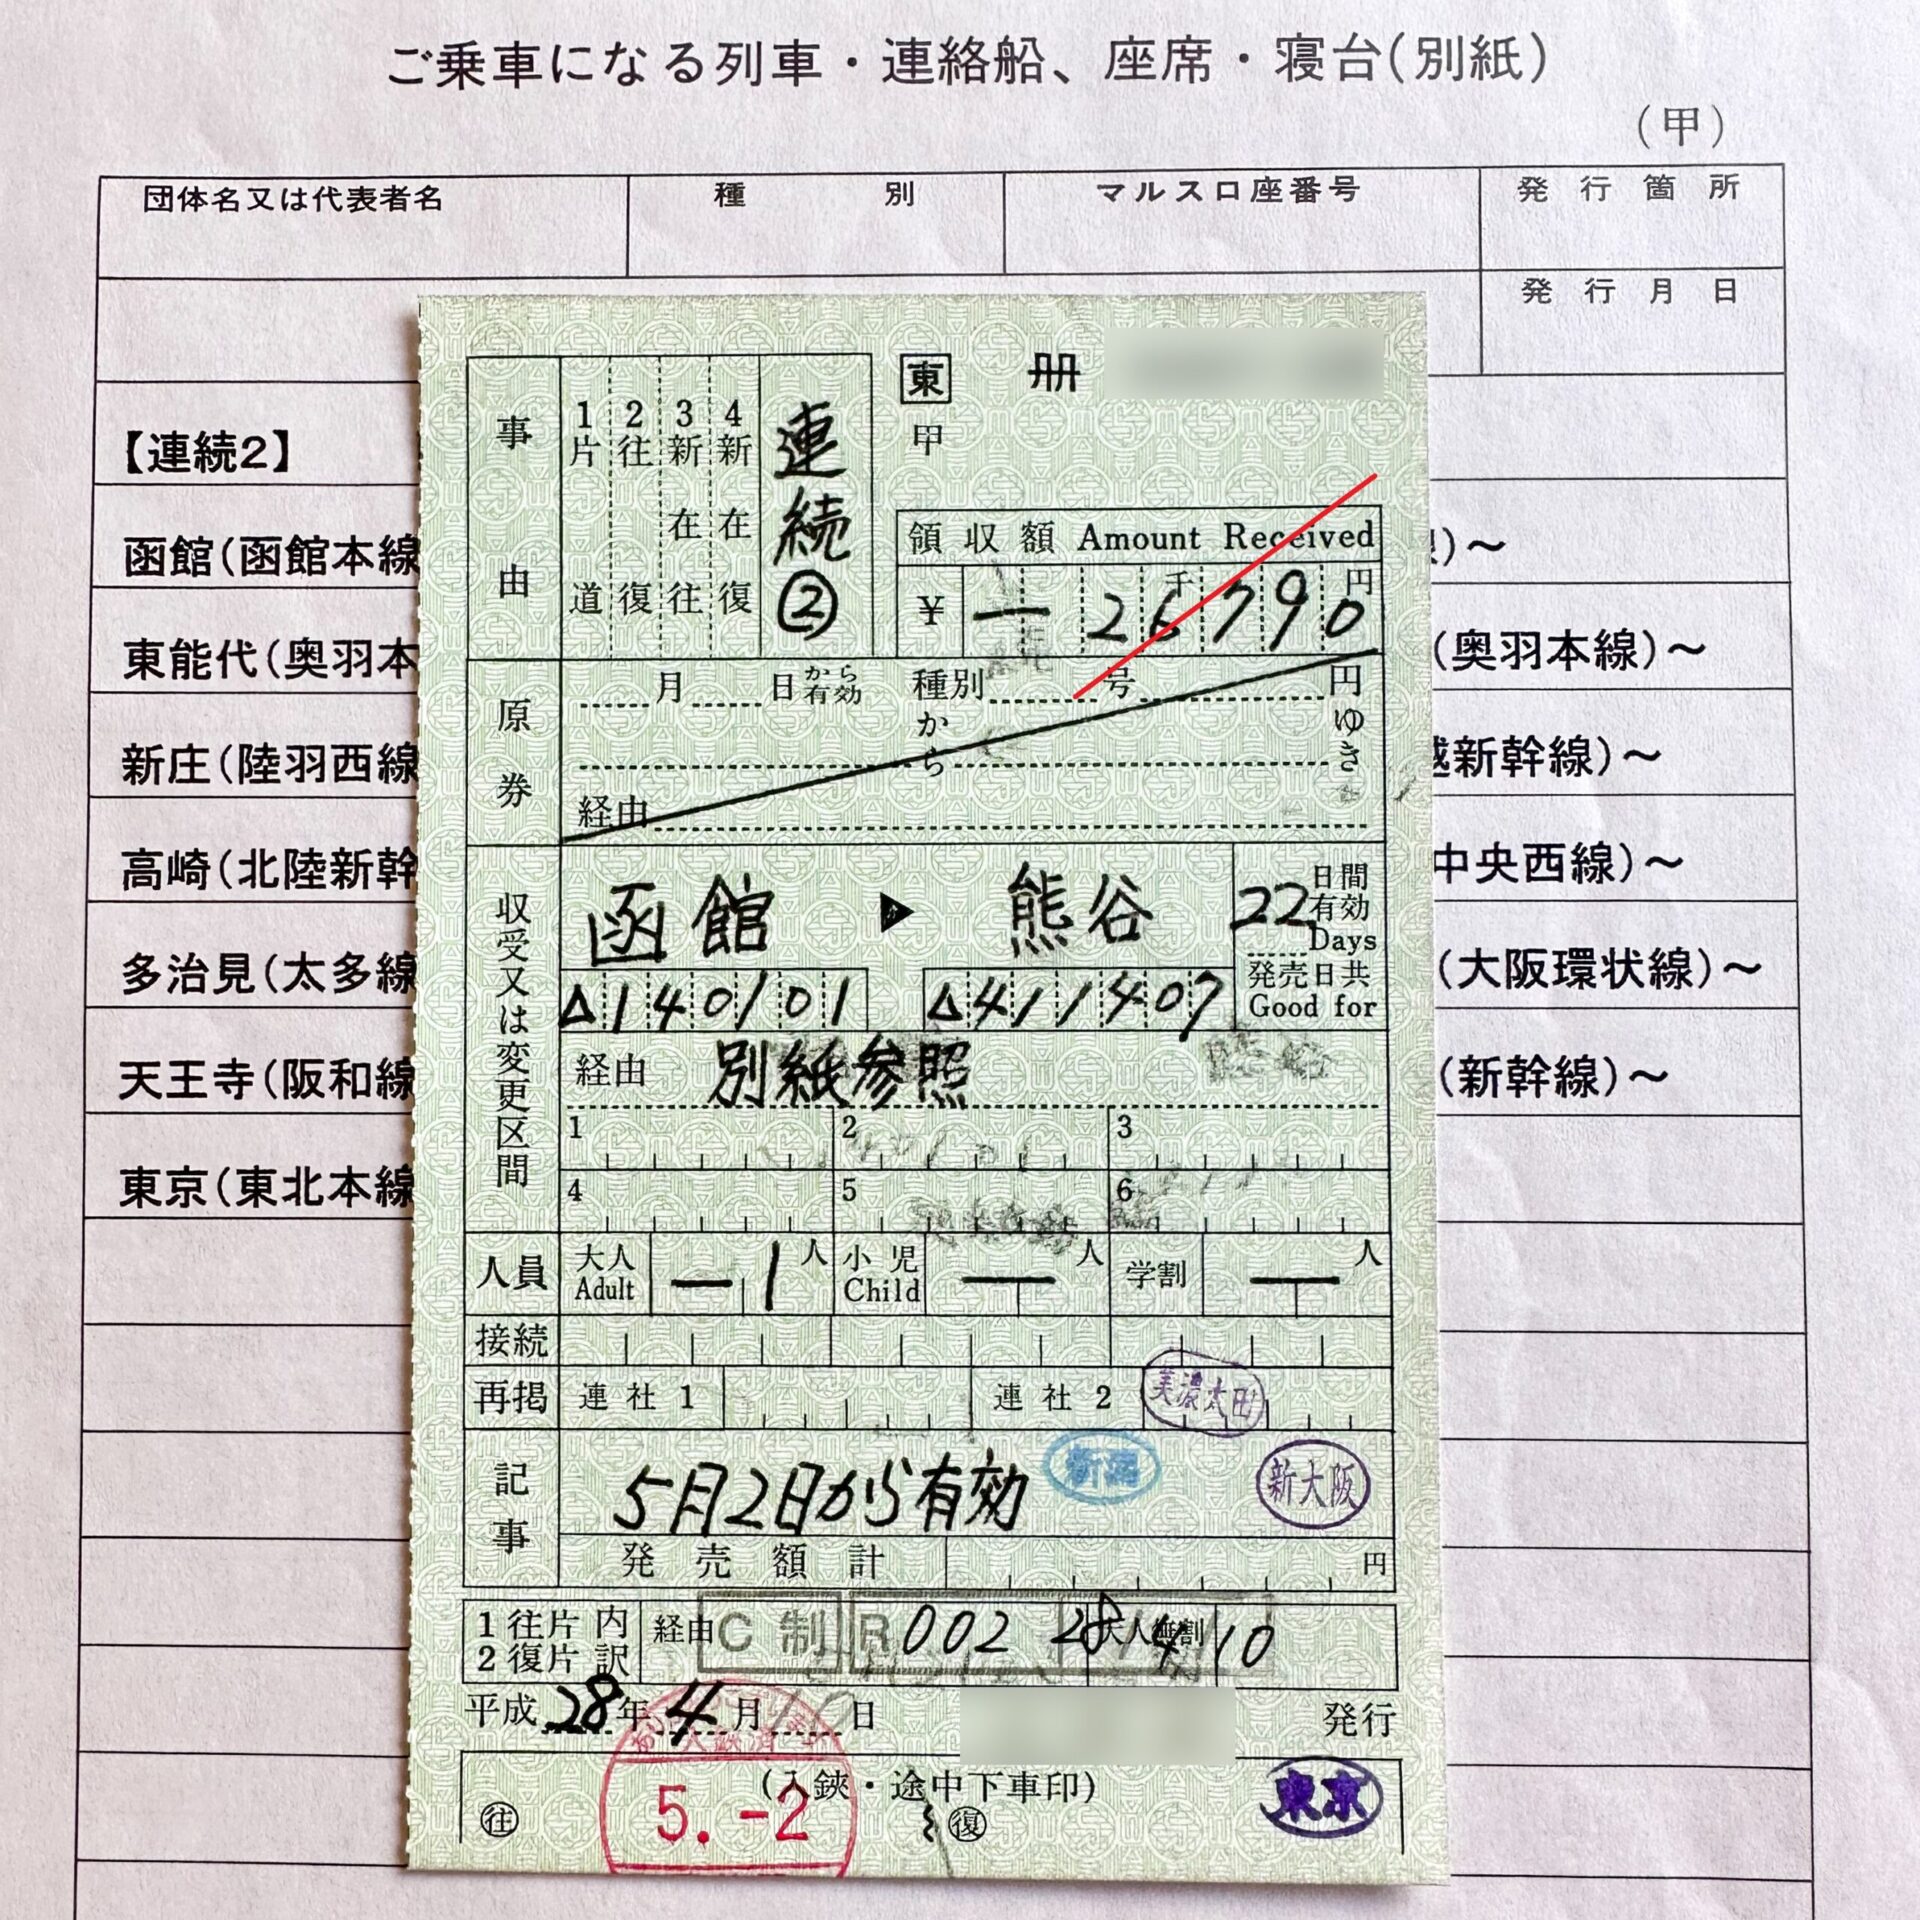 ご乗車になる列車・連絡船、座席・寝台(別紙)
(甲)
団体名又は代表者名 種別 マルス口座番号 発行箇所
発行月日
【連続2】
函館(函館本線 )～
東能代(奥羽本 (奥羽本線)～
新庄(陸羽西線 越新幹線)～
高崎(北陸新幹 中央西線)～
多治見(太多線 (大阪環状線)～
天王寺(阪和線 (新幹線)～
東京(東北本線
東 冊
甲
事由
1片道
2往復
3新在往
4新在復
連続②
領収額 Amount Received
¥ ー 26790 千 円
原券
月 日から有効 種別 号 円
から ゆき
経由
収受又は変更区間
函館 ▶ 熊谷
22日間有効
Days
発売日共
Good for
△140101 △411407
経由 別紙参照
1 2 3
4 5 6
人員 大人 Adult ー1人 小児 Child ー人 学割 ー人
接続
再掲 連社1 連社2
美濃太田
記事
5月2日から有効
新潟
新大阪
発売額計 円
1往片 2復片 内訳 経由 C制 R 002 28 4 10
平成28年4月10日 発行
5.-2
(入鋏・途中下車印)
往 復
東京